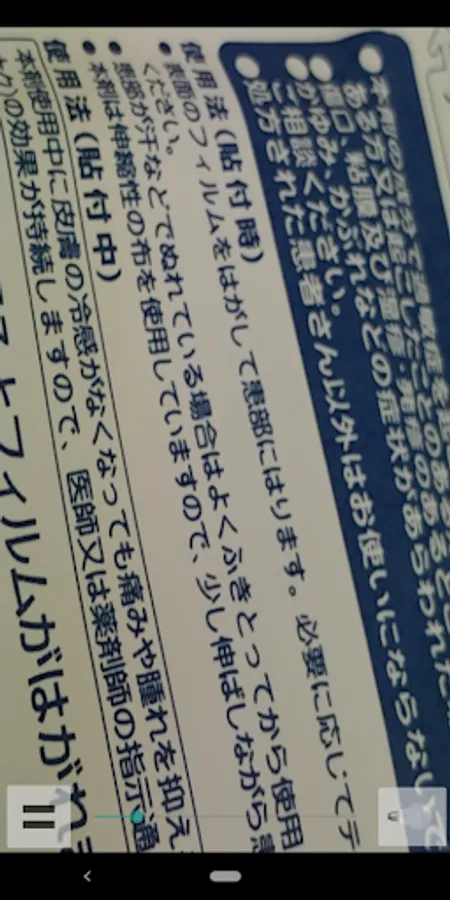 本剤の成分で過敏症を
傷口、粘膜及び湿疹・発疹の
かゆみ、かぶれなどの症状があらわれた
ご相談ください。
処方された患者さん以外はお使いにならない
使用法(貼付時)
● 表面のフィルムをはがして患部にはります。必要に応じてテ
ください。
● 患部が汗などでぬれている場合はよくふきとってから使用
● 本剤は伸縮性の布を使用していますので、少し伸ばしながら患
使用法(貼付中)
本剤使用中に皮膚の冷感がなくなっても痛みや腫れを抑え
の効果が持続しますので、医師又は薬剤師の指示通
とフィルムがはがれ